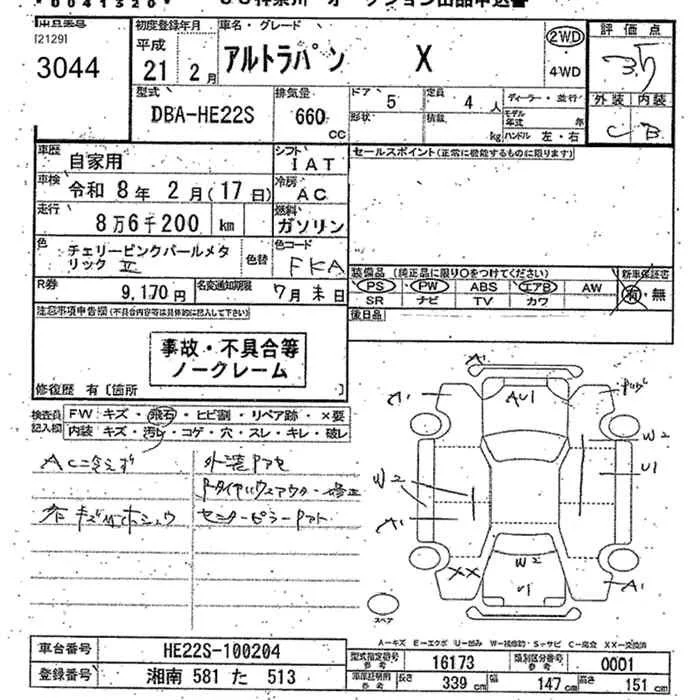 *0041520*
[2129]
3044
初度登録年月
平成
21年 2月
車名・グレード
アルトラパン X
2WD
4WD
評価点
3.5
外装 内装
C B
型式
DBA-HE22S
排気量
660 cc
ドア 5
定員 4人
形状
積載 kg
ディーラー・並行
モデル年式 年
ハンドル 左・右
車歴 自家用
シフト IAT
セールスポイント(正常に機能するものに限ります)
車検 令和 8年 2月(17日)
冷房 AC
走行 8万6千200 km
燃料 ガソリン
色 チェリーピンクパールメタリック
色替
色コード FKA
装備品 (純正品に限り○をつけてください)
新車保証書
PS PW ABS エアB AW
有・無
SR ナビ TV カワ
R券 9,170円
名変通知期限 7月 末日
後日品
注意事項申告欄(不具合内容等は具体的に記入して下さい)
事故・不具合等
ノークレーム
修復歴 有〔箇所 〕
検査員記入欄
FW キズ・飛石・ヒビ割・リペア跡・×要
内装 キズ・汚れ・コゲ・穴・スレ・キレ・破レ
AC冷えず
外装アセ
センターピラー
A1
AU1
A1
W2
U1
W2
A1
XX
W2
U1
A1
スペア
A-キズ E-エクボ U-凹み W-補修跡 S-サビ C-腐食 XX-交換済
車台番号 HE22S-100204
登録番号 湘南 581 た 513
型式指定番号 参考 16173
類別区分番号 参考 0001
長さ 339 cm
幅 147 cm
高さ 151 cm